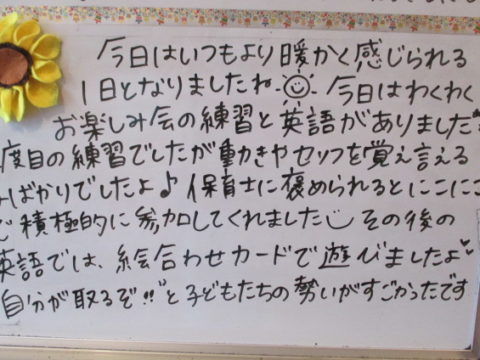 今日はいつもより暖かく感じられる
1日となりましたね 今日はわくわく
お楽しみ会の練習と英語がありました
度目の練習でしたが動きやセリフを覚え言える
ばかりでしたよ♪ 保育士に褒められるとにこにこ
で積極的に参加してくれました その後の
英語では、絵合わせカードで遊びましたよ♥
"自分が取るぞ!!"と子どもたちの勢いがすごかったです